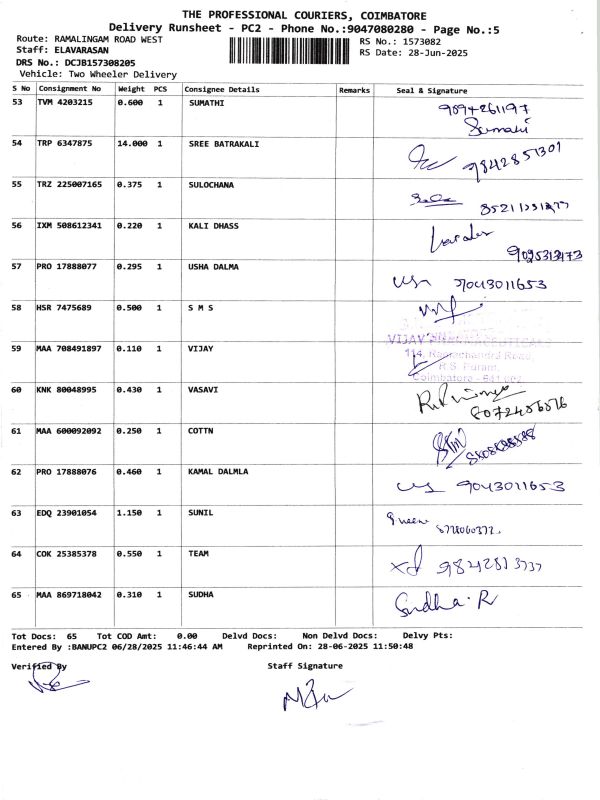 THE PROFESSIONAL COURIERS, COIMBATORE
Delivery Runsheet - PC2 - Phone No.:9047080280 - Page No.:5
Route: RAMALINGAM ROAD WEST RS No.: 1573082
Staff: ELAVARASAN RS Date: 28-Jun-2025
DRS No.: DCJB157308205
Vehicle: Two Wheeler Delivery
S No Consignment No Weight PCS Consignee Details Remarks Seal & Signature
53 TVM 4203215 0.600 1 SUMATHI 9094261197
Sumathi
54 TRP 6347875 14.000 1 SREE BATRAKALI 9842851301
55 TRZ 225007165 0.375 1 SULOCHANA
56 IXM 508612341 0.220 1 KALI DHASS
57 PRO 17888077 0.295 1 USHA DALMA 9043011653
58 HSR 7475689 0.500 1 S M S
59 MAA 708491897 0.110 1 VIJAY VIJAY
114, Ramachandra Road,
R.S. Puram,
Coimbatore - 641 002
60 KNK 80048995 0.430 1 VASAVI
61 MAA 600092092 0.250 1 COTTN
62 PRO 17888076 0.460 1 KAMAL DALMLA 9043011653
63 EDQ 23901054 1.150 1 SUNIL
64 COK 25385378 0.550 1 TEAM 9842813737
65 MAA 869718042 0.310 1 SUDHA Sudha. R
Tot Docs: 65 Tot COD Amt: 0.00 Delvd Docs: Non Delvd Docs: Delvy Pts:
Entered By :BANUPC2 06/28/2025 11:46:44 AM Reprinted On: 28-06-2025 11:50:48
Verified By Staff Signature